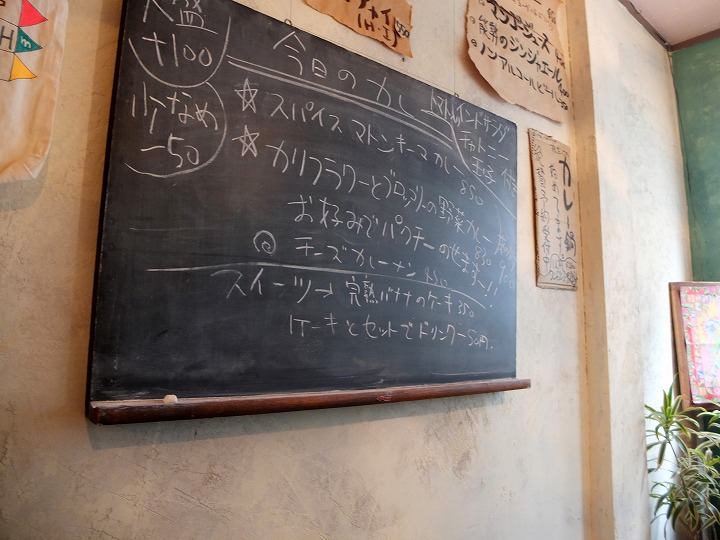 大盛
+100
少なめ
-50
今日のカレー
トマト インドサラダ
チャトニー
玉子 付き
☆ スパイスマトンキーマカレー 850
☆ カリフラワーとブロッコリーの野菜カレー 830
お好みでパクチーのせます〜!!
◎ チーズカレーメン 850
スイーツ→ 完熟バナナのケーキ 350
ケーキとセットでドリンクー50円。
マンゴージュース
のジンジャエール
ノンアルコールビール
カレー鍋